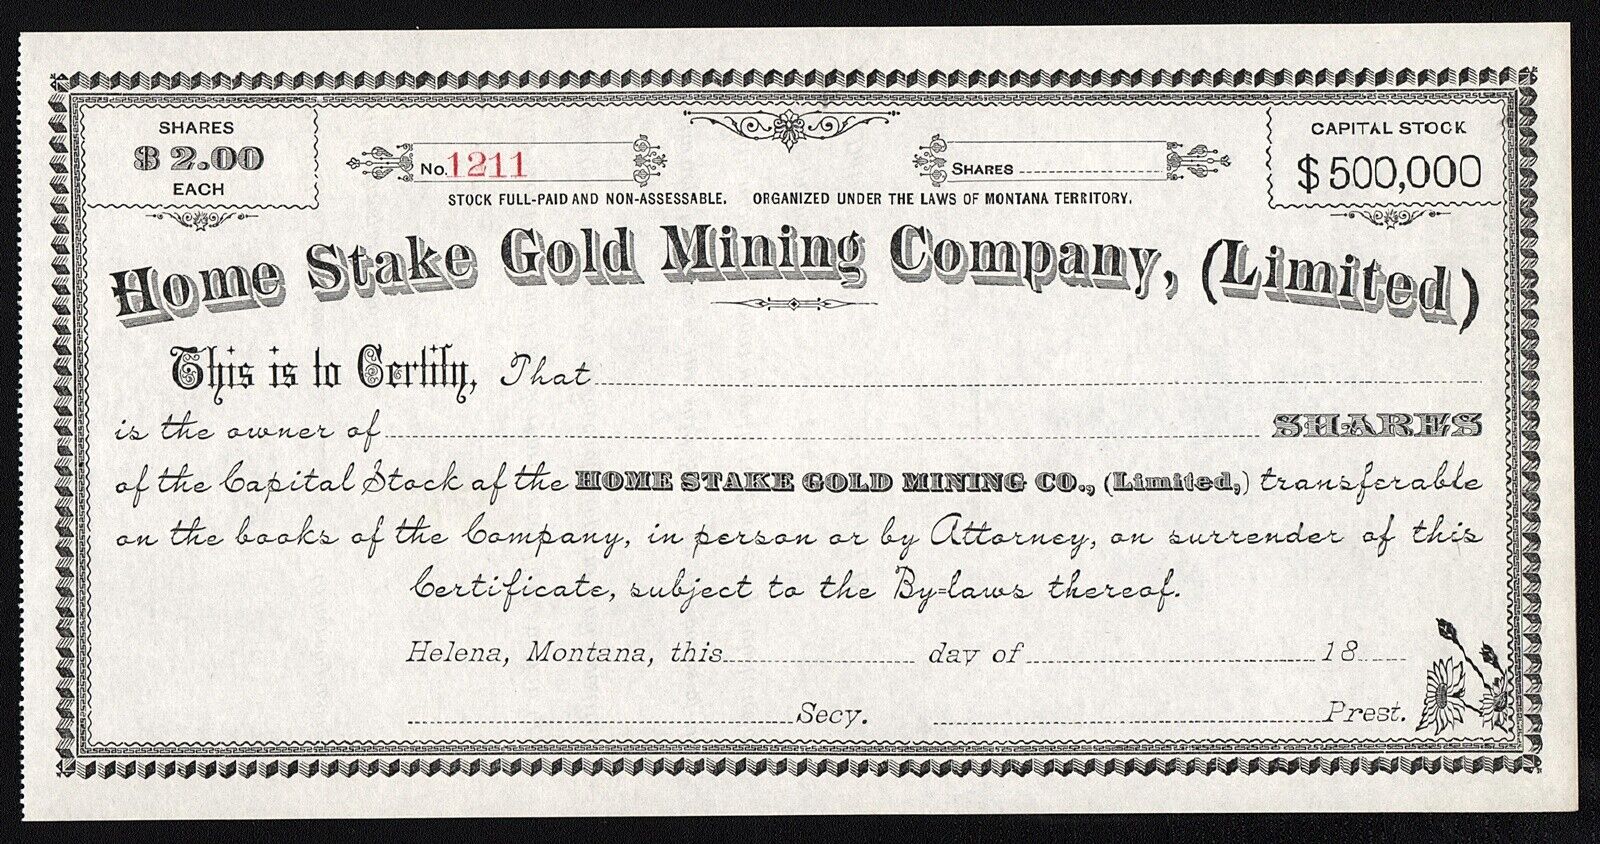 SHARES
$ 2.00
EACH
No. 1211
SHARES
CAPITAL STOCK
$ 500,000
STOCK FULL-PAID AND NON-ASSESSABLE. ORGANIZED UNDER THE LAWS OF MONTANA TERRITORY.
Home Stake Gold Mining Company, (Limited)
This is to Certify, That
is the owner of SHARES
of the Capital Stock of the HOME STAKE GOLD MINING CO., (Limited,) transferable
on the books of the Company, in person or by Attorney, on surrender of this
Certificate, subject to the By=laws thereof.
Helena, Montana, this day of 18
Secy. Prest.